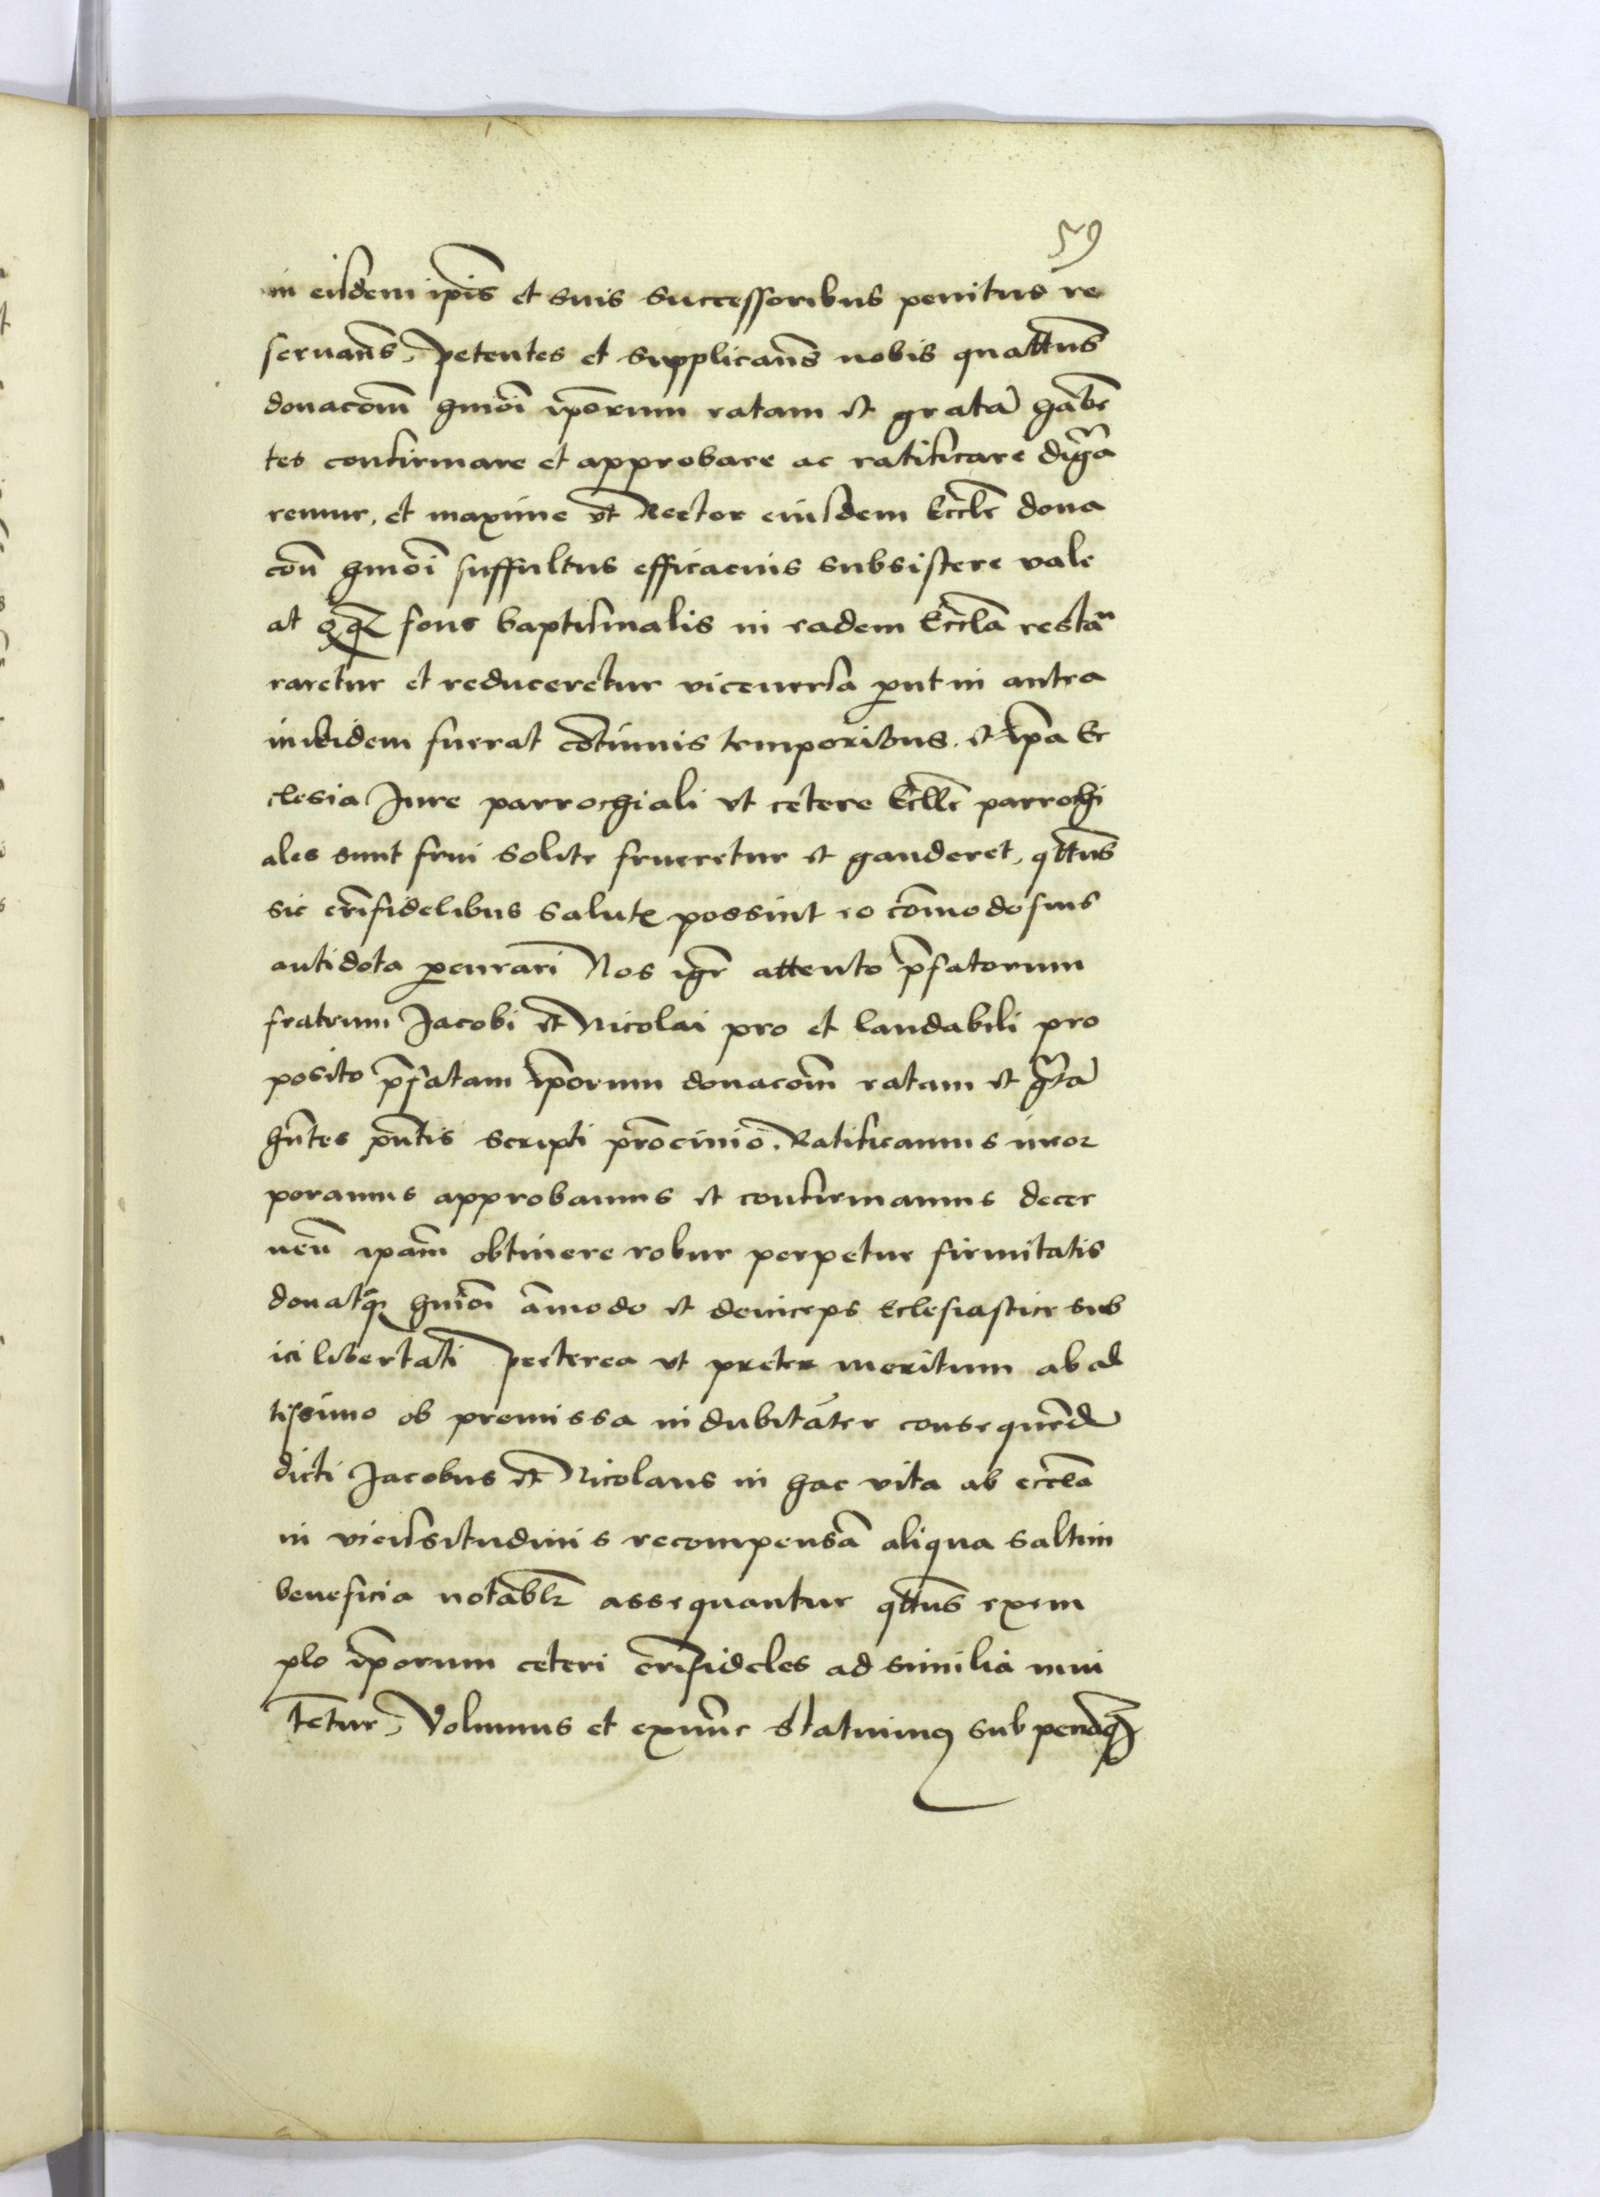 59
in eisdem ip̄is et suis successoribus penitus re
seruan̄s, petentes et supplican̄s nobis quatt̄nus
donacōm hmōi ip̄orum ratam et gratā haben̄
tes confirmare et approbare ac ratificare digna
remur, et maxime vt Rector eiusdem Eccl̄e dona
cōn hmōi suffultus efficacius subsistere vale
at fons baptismalis in eadem Eccl̄a restau
raretur et reduceretur viceuersa put in antea
inibidem fuerat cōtinuis temporibus. et ip̄a Ec
clesia Jure parrochiali vt cetere Eccl̄e parrochi
ales sunt frui solite frueretur et gauderet, qt̄tnus
sic cr̄ifidelibus salutē possint eo cōmodosius
antidota pcurari Nos igr̄ attento p̄fatorum
fratrum Jacobi et Nicolai pro et laudabili pro
posito p̄fatam ip̄orum donacōm ratam et gratā
hn̄tes pn̄tis scripti pr̄ocinio. Ratificamus incor
poramus approbamus et confirmamus decer
nen̄ ip̄am obtinere robur perpetue firmitatis
donatq̄ hmōi āmodo et deinceps Eclesiastice sub
ici libertati Preterea vt preter meritum ab al
tissimo ob premissa indubitāter consequend̄
dicti Jacobus et Nicolaus in hac vita ab eccl̄ia
in vicissitudinis recompensā aliqua saltim
beneficia notabl̄r assequantur qt̄tnus exem
plo ip̄orum ceteri cr̄ifideles ad similia inui
tētur, Volumus et exnūc statuimus sub pena